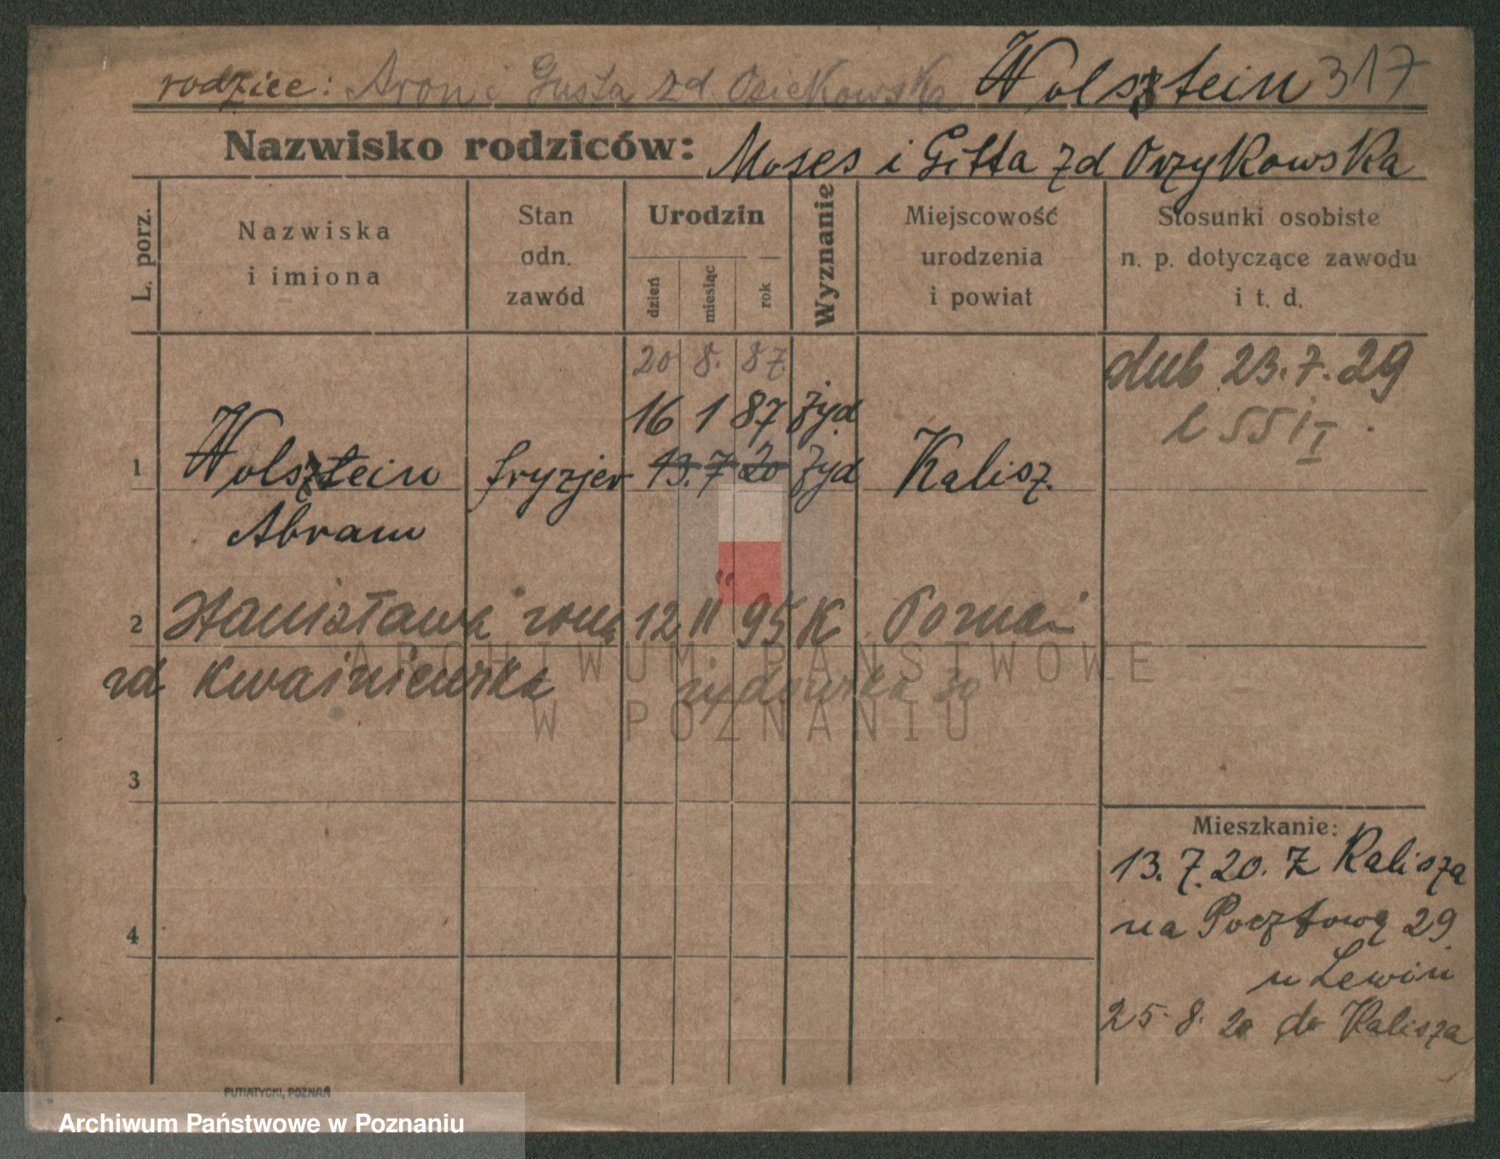 rodzice: Aron i Gusta zd. Osiekowska Wolsztein 317
Nazwisko rodziców: Moses i Gitta zd Orzykowska
L. porz.
Nazwiska
i imiona
Stan
odn.
zawód
Urodzin
dzień
miesiąc
rok
Wyznanie
Miejscowość
urodzenia
i powiat
Stosunki osobiste
n. p. dotyczące zawodu
i t. d.
20 8. 87.
dub 23.7.29
16 1 87 żyd
l 55/I
1 Wolsztein fryzjer 13. 7 20 żyd Kalisz.
Abram
2 Stanisława żona 12 11 95 K Poznań
zd Kwaśniewska żydowska
3
4
Mieszkanie:
13.7.20. z Kalisza
na Pocztową 29
u Lewin
25.8.20 do Kalisza
PUTIATYCKI, POZNAŃ
ARCHIWUM PAŃSTWOWE
W POZNANIU
Archiwum Państwowe w Poznaniu